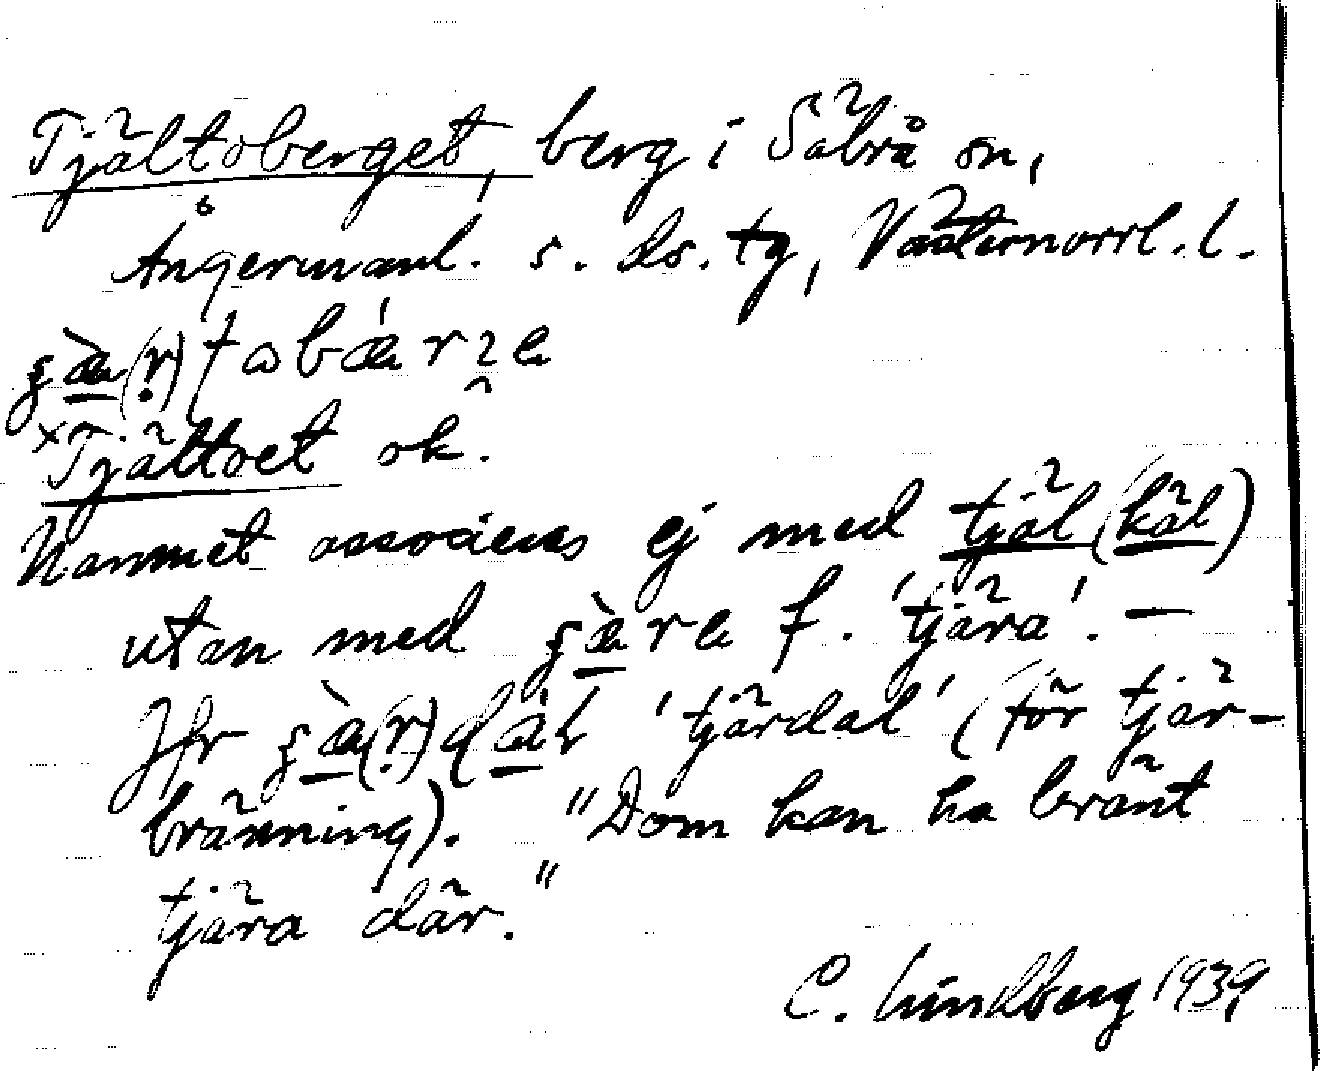 Tjältoberget, berg i Säbrå sn,
Ångermanl. s. ds. tg, Västernorrl. l.
ʂæ̀(ṛ)tωbǽrʒe
ˣTjältoet ok.
Namnet associeras ej med tjäl (käl)
utan med ʂæ̀re f. 'tjära'. –
Jfr ʂæ̀(ṛ)dáɫ 'tjärdal' (för tjär-
bränning). "Dom kan ha bränt
tjära där."
C. Lindberg 1939